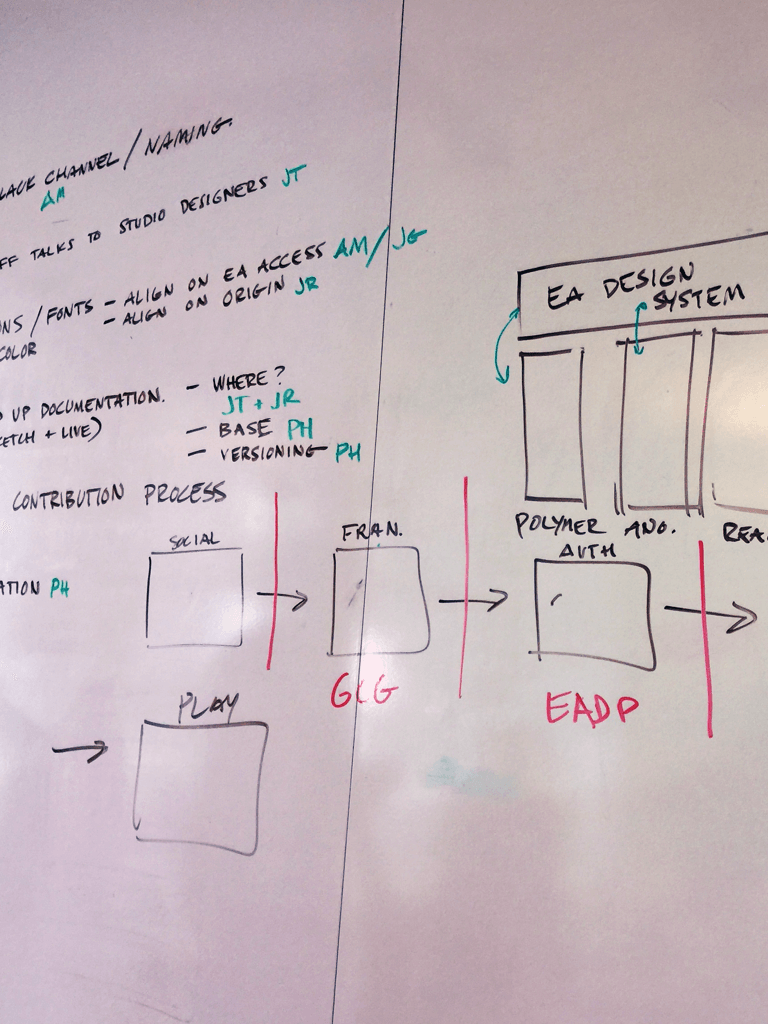 LACK CHANNEL / NAMING.
AM
FF TALKS TO STUDIO DESIGNERS JT
ONS / FONTS - ALIGN ON EA ACCESS AM / JG
- ALIGN ON ORIGIN JR
COLOR
UP DOCUMENTATION. - WHERE?
JT + JR
ETCH + LIVE)
- BASE PH
- VERSIONING PH
CONTRIBUTION PROCESS
ATION PH
SOCIAL
FRAN.
GCG
PLAY
EA DESIGN
SYSTEM
POLYMER AND. REA
AUTH
EADP